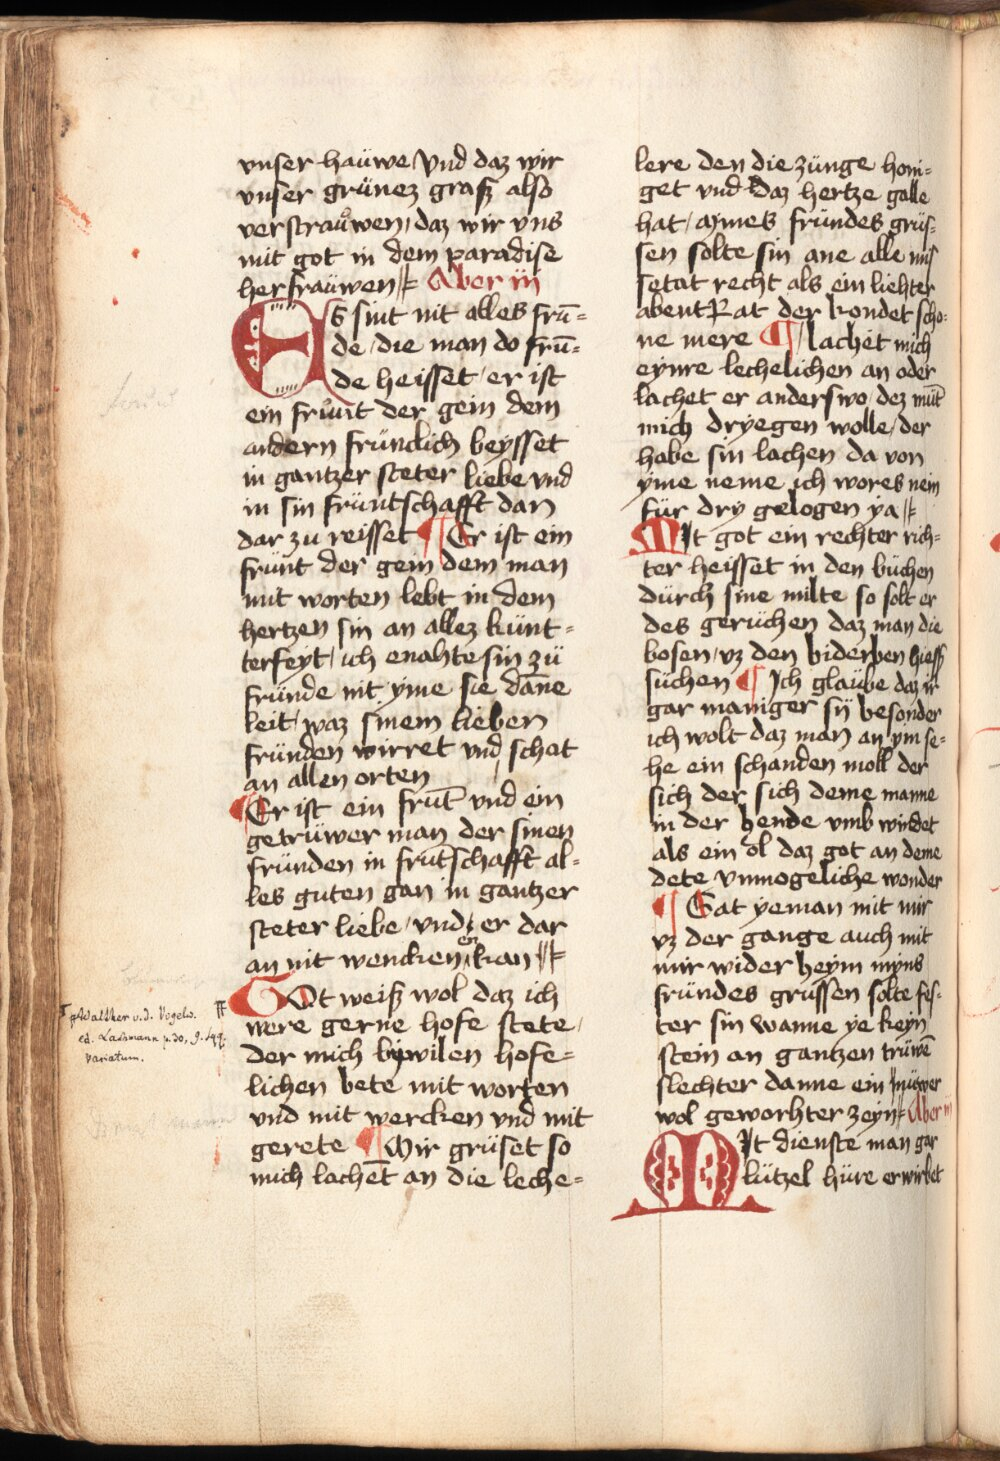 vnser haüwe Vnd daz wir
vnser grünez graß also
verstrauͦwen / daz wir vns
mit got in dem paradise
her frauͤwen Aber iij
ES sint nit alles frǖ=
de / die man do frǖ=
de heisset / er ist
ein fruͤnt der gein dem
andern fründich beysset
in gantzer steter liebe vnd
in sin früntschafft dan
dar zu reisset ¶ Er ist ein
frünt der gein dem man
mit worten lebt in dem
hertzen sin an allez künt=
terfeyt / ich enahte sin zü
fründe nit yme sie dan̄e
leit / waz sinem lieben
fründen wirret vnd schat
an allen orten
¶ Er ist ein frūt vnd ein
getrüwer man der sinen
fründen in frūtschafft al=
les guten gan in gantzer
steter liebe / vnd er dar
an nit wencken en kan
GOt weiß wol daz ich
were gerne hofe stete /
der mich bywilen hofe=
lichen bete mit worten
vnd mit wercken vnd mit
gerete ¶ Mir grüset so
mich lachet̄ an die leche=
¶ Walther v. d. Vogelw.
ed. Lachmann p. 30, 9. sqq.
variatum.
lere den die zünge honi=
get vnd daz hertze galle
hat / mynes fründes grüs=
sen solte sin ane alle mis
setat recht als ein liehter
abent Rat der kondet scho=
ne mere ¶ / lachet mich
eynre lechelichen an oder
lachet er anderswo / dez mūt
mich dryegen wolle / der
habe sin lachen da von
yme neme ich wores nein
für dry gelogen ya
MIt got ein rechter rich=
ter heisset in den büchen
dürch sine milte so solt er
des gerüchen daz man die
bosen / vz den biderben hieß
süchen ¶ Ich glaübe daz ir
gar maniger sij besonder
ich wolt daz man an ym se=
he ein schanden moll der
sich der sich deme manne
in der hende vmb windet
als ein ol daz got an deme
dete vnmogeliche wonder
¶ Gat yeman mit mir
vz der gange auch mit
mir wider heym myns
fründes grüssen solte fes=
ter sin wanne ye keyn
stein an gantzen trüwē
slechter danne ein nüwer
wol geworhter zeyn Aber iij
MIt dienste man gar
lützel hüre erwirbet